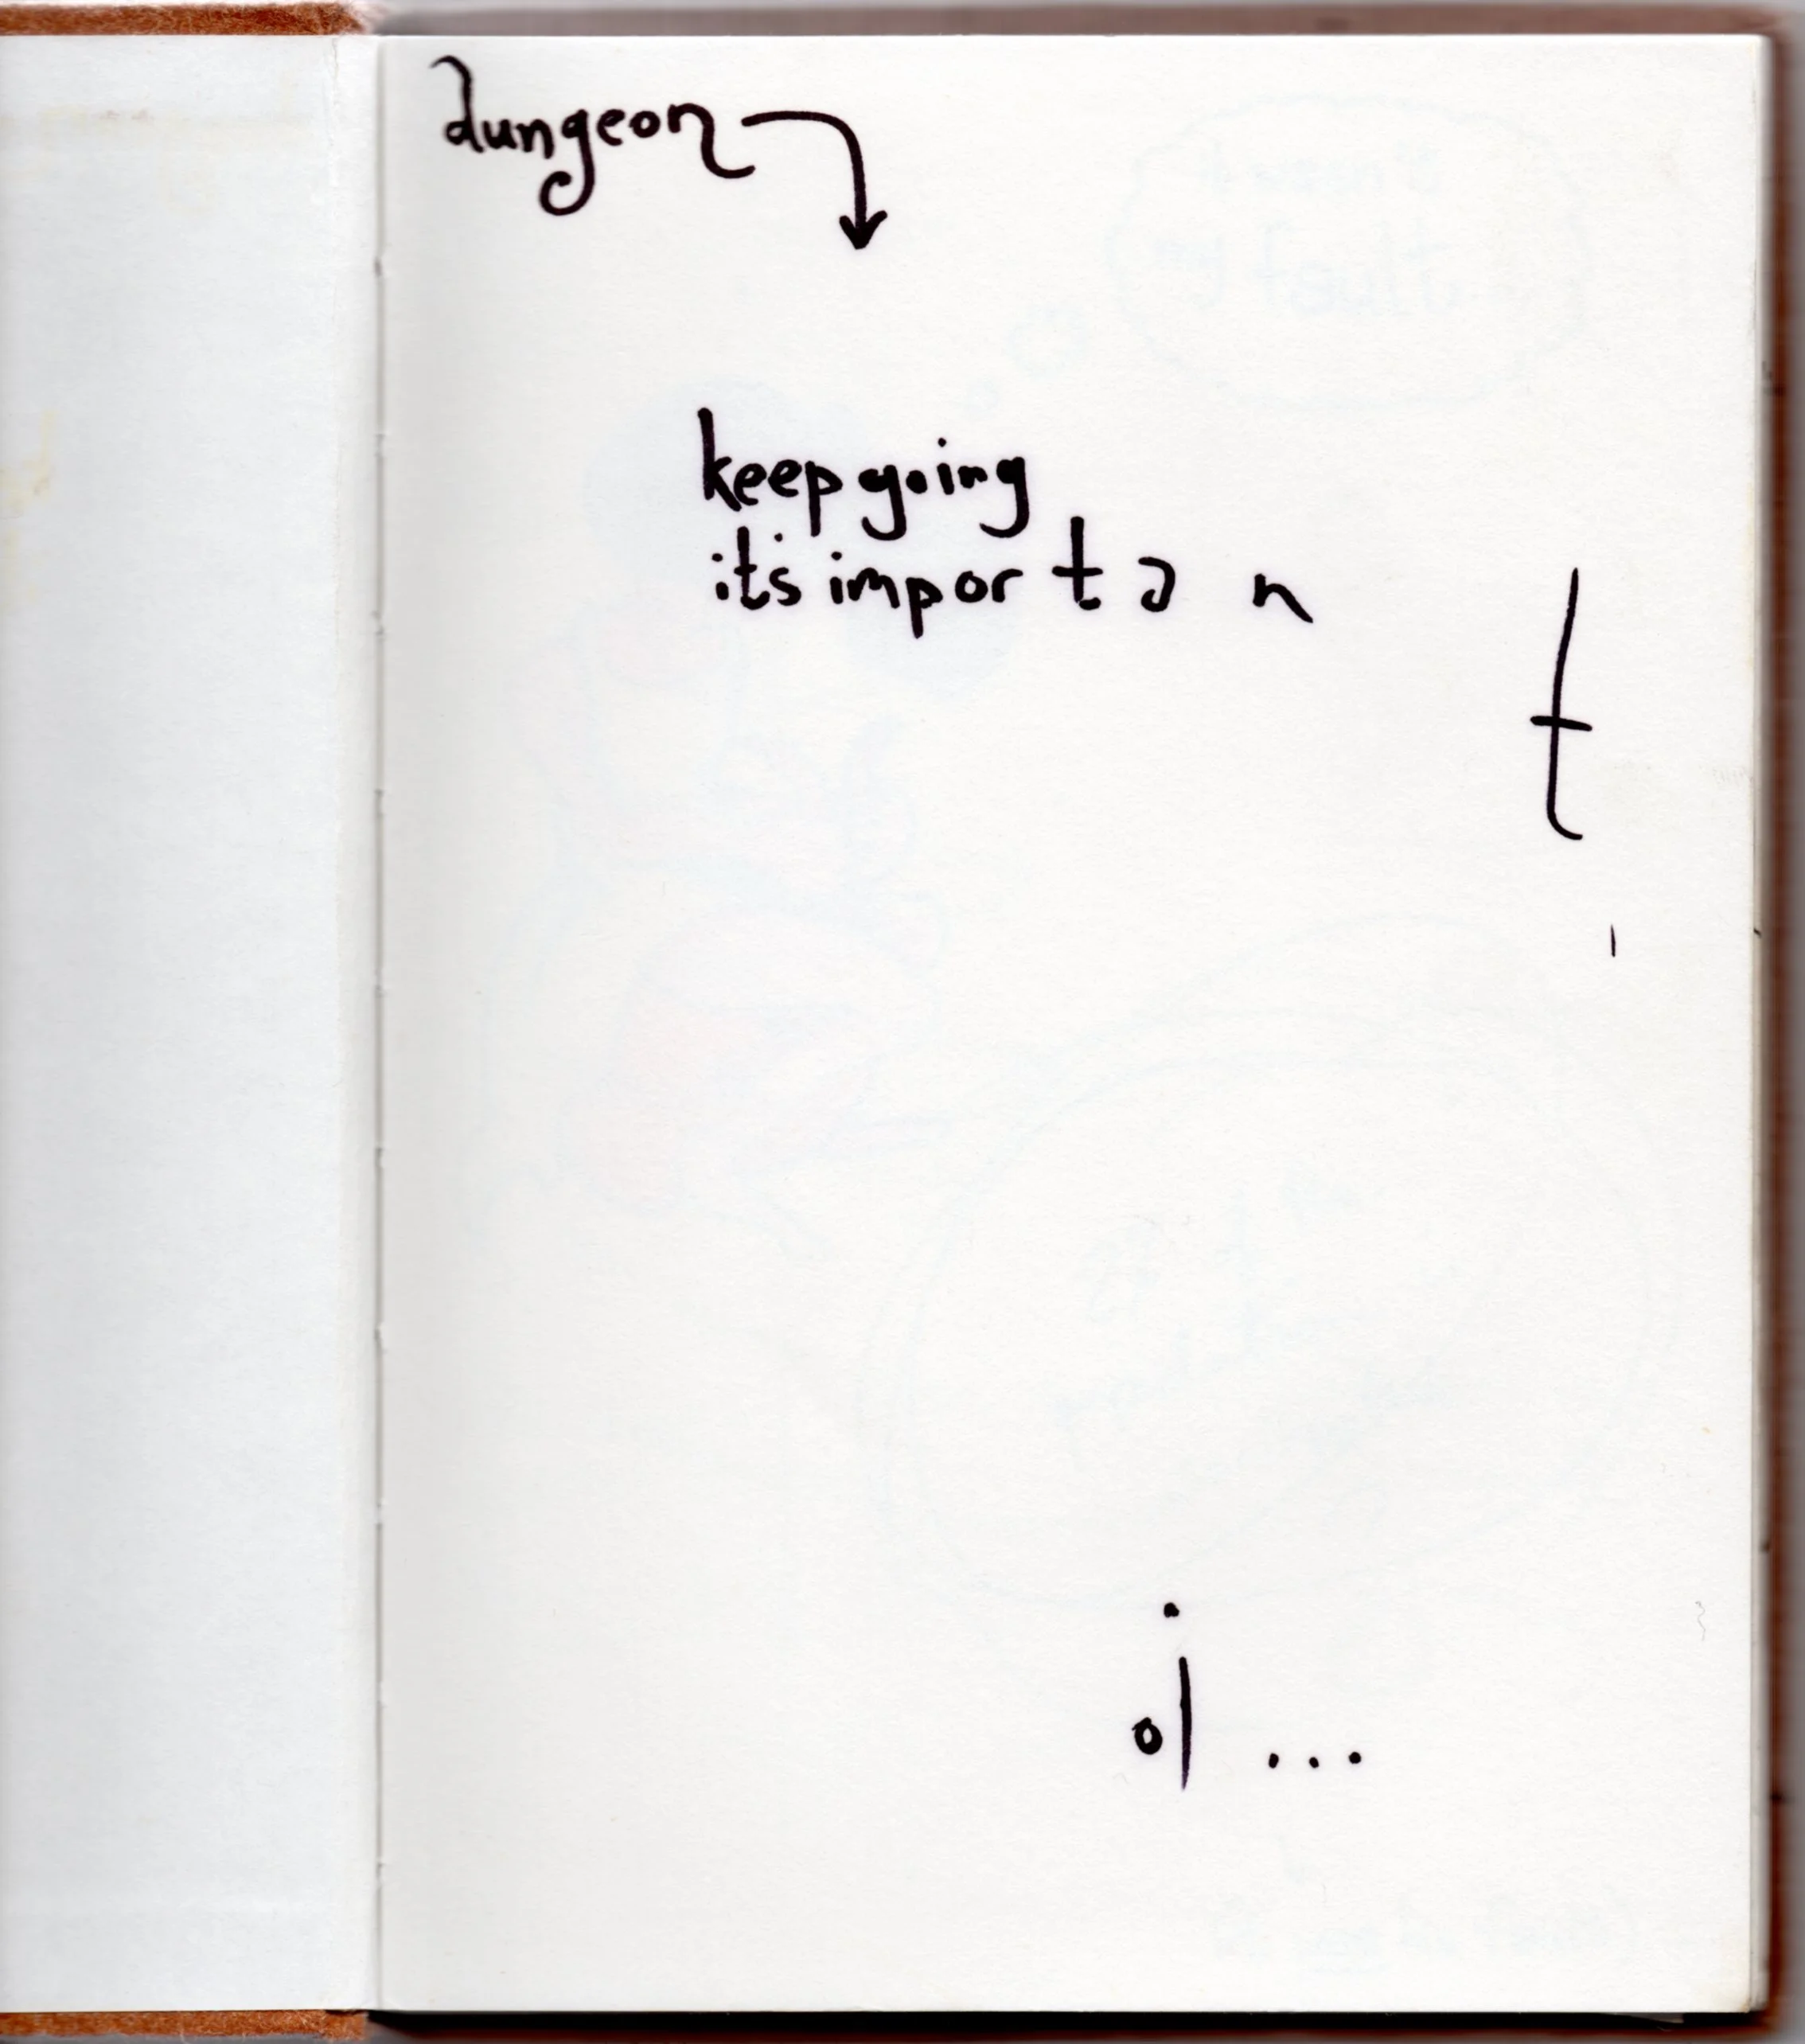 dungeon
keep going
it's important